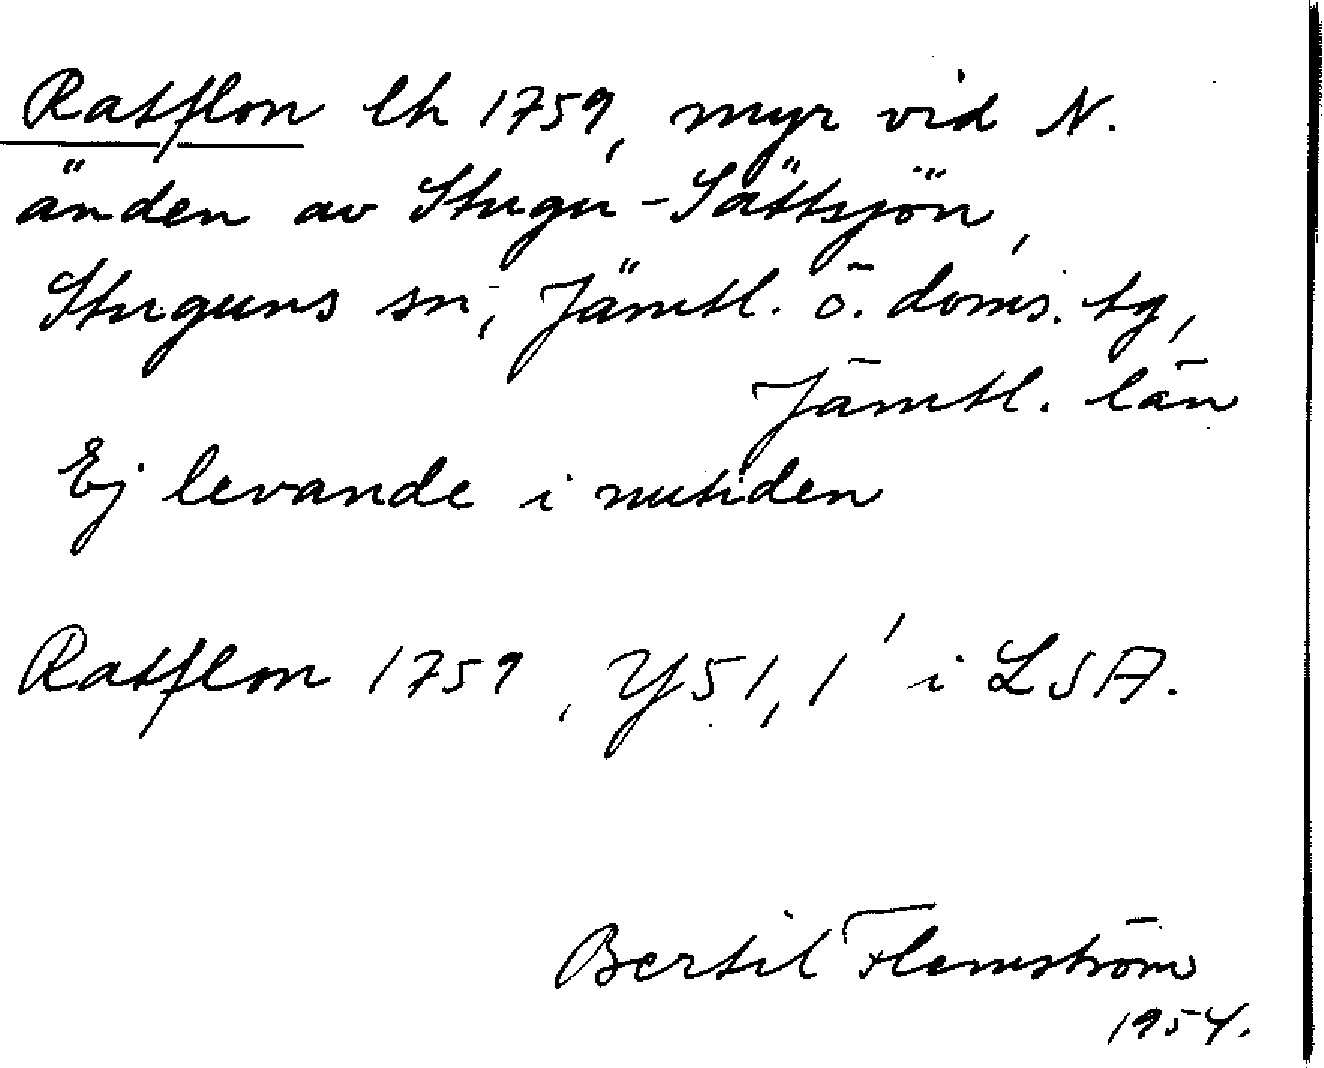 Ratflon lh 1759, myr vid N.
änden av Stugu-Sättsjön,
Stuguns sn, Jämtl. ö. doms. tg,
Jämtl. län
Ej levande i nutiden
Ratflon 1759, Y51, 1' i LSA.
Bertil Flemström
1954.